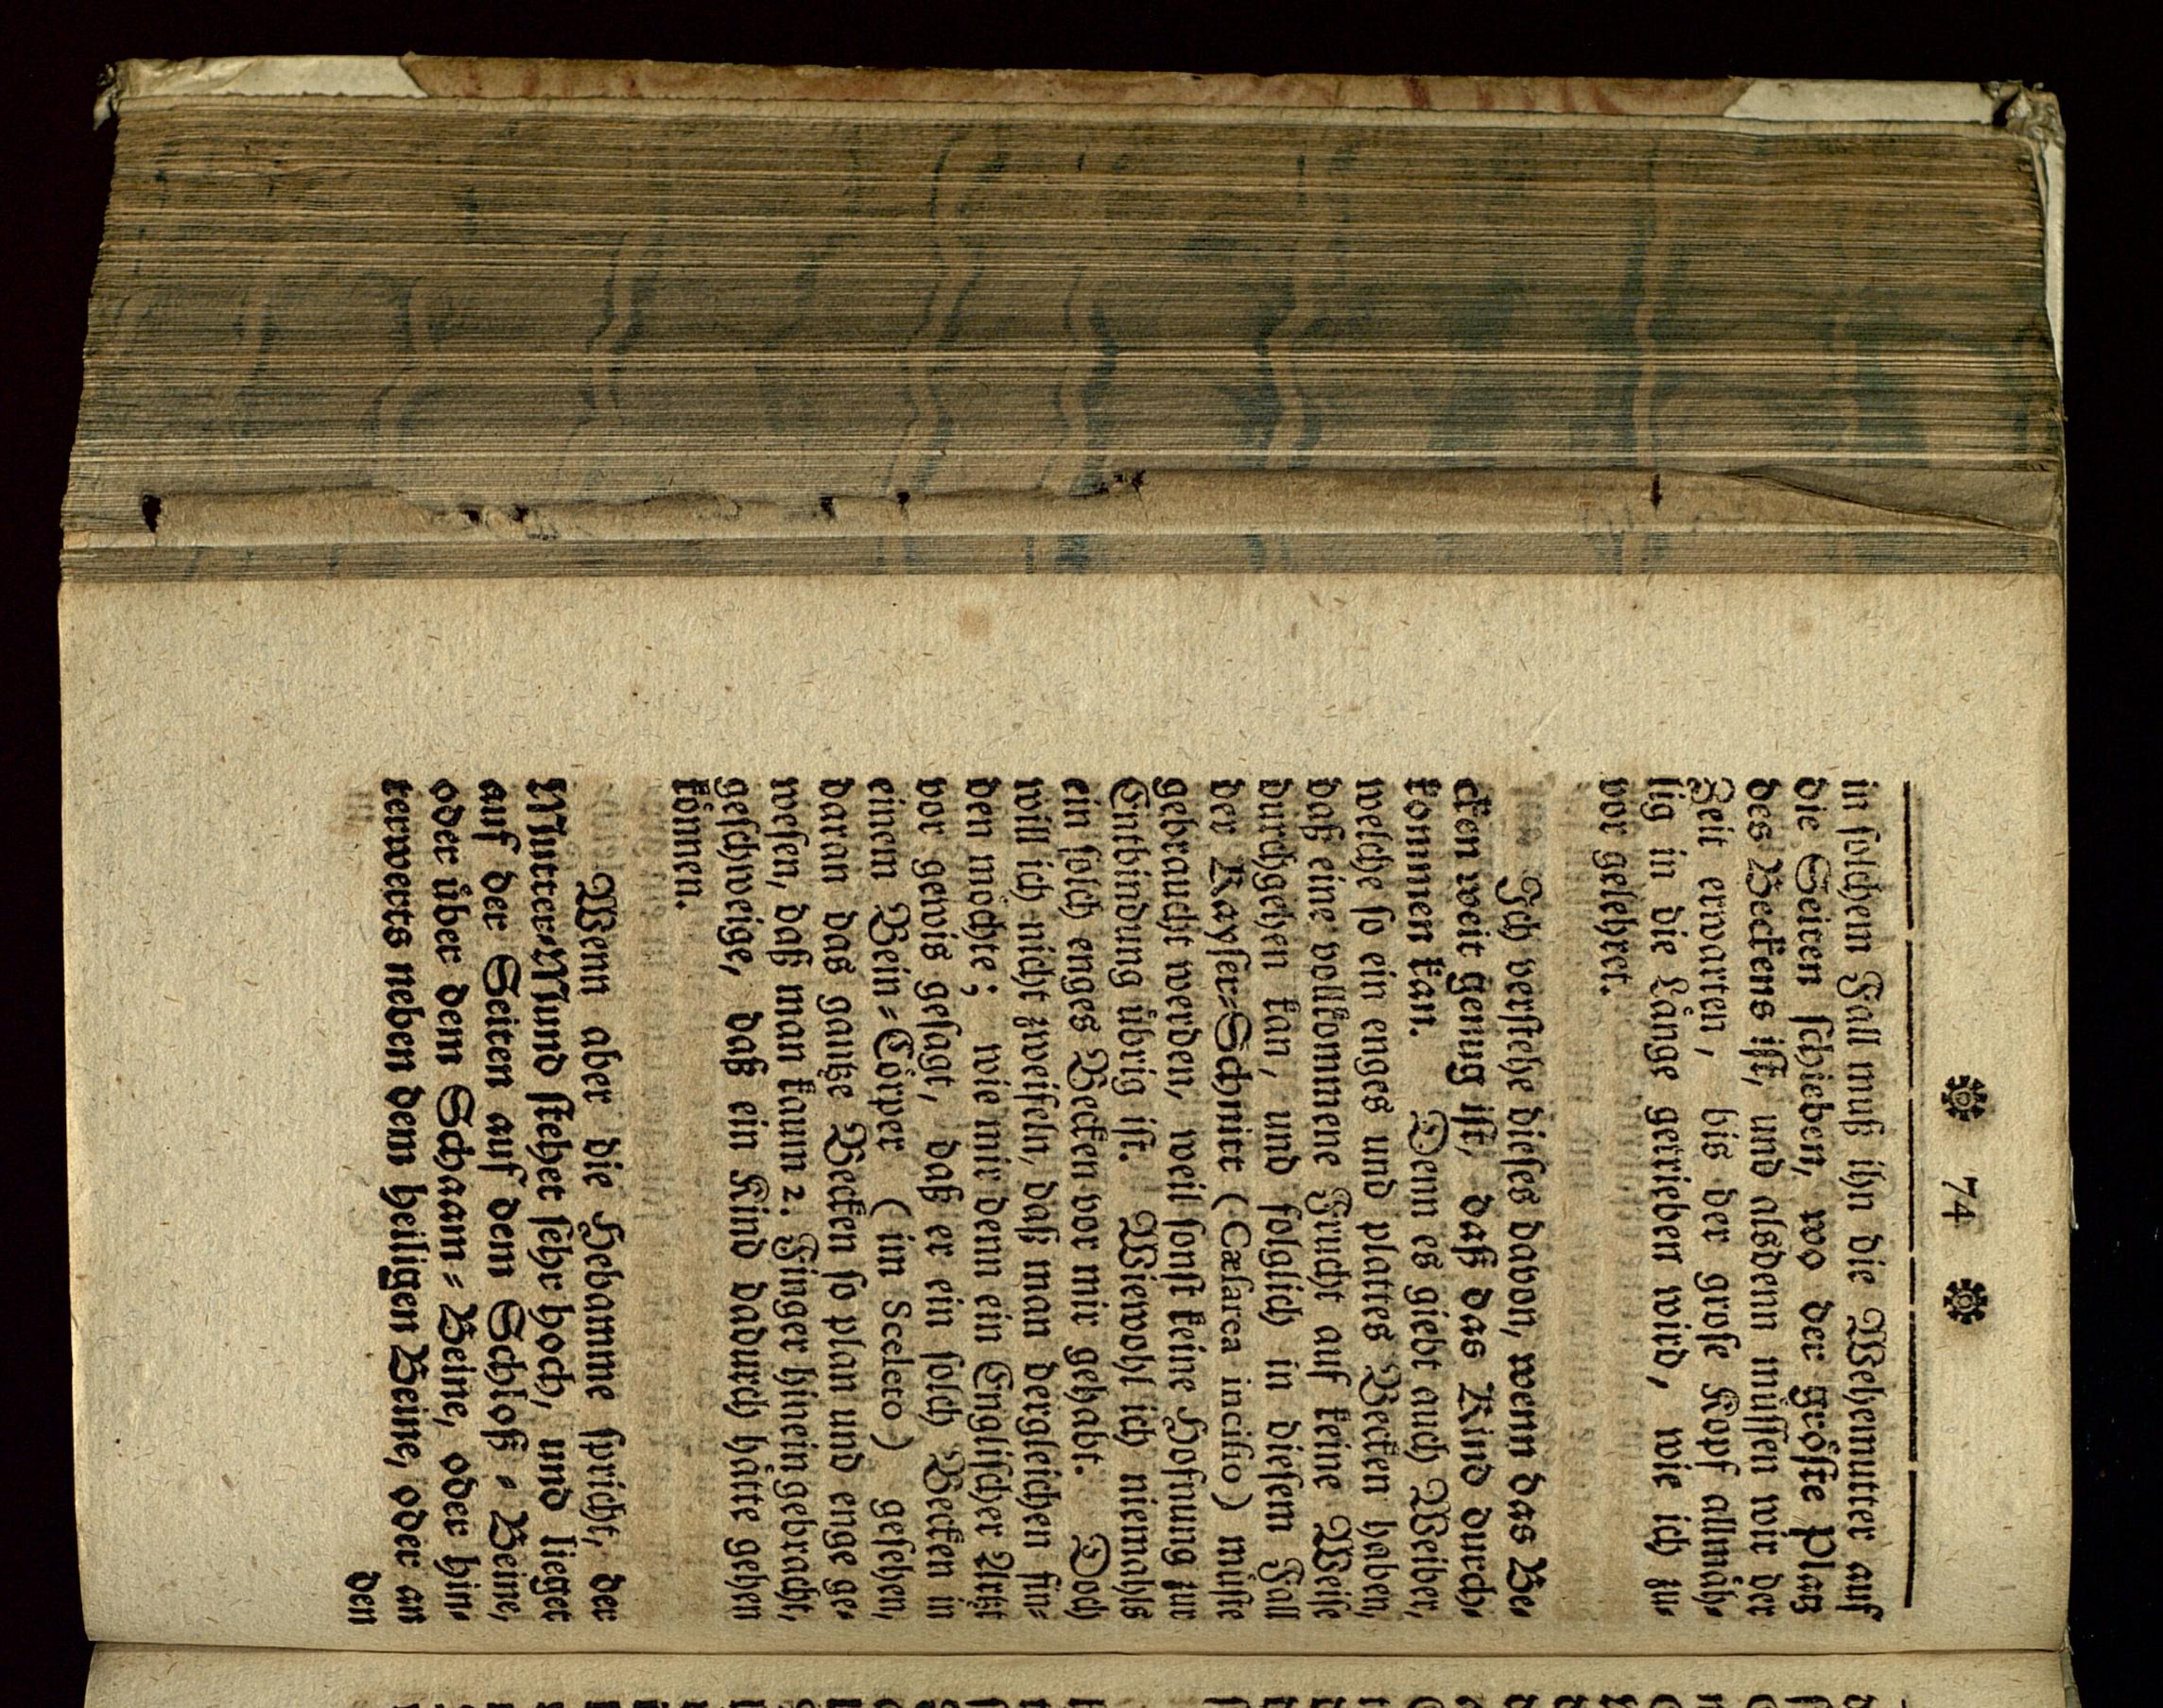 ❁ 74 ❁
in solchem Fall muß ihn die Wehemutter auf
die Seiten schieben, wo der gröste Platz
des Beckens ist, und alsdenn müssen wir der
Zeit erwarten, bis der grose Kopf allmäh-
lig in die Länge getrieben wird, wie ich zu-
vor gelehret.
Ich verstehe dieses davon, wenn das Be-
cken weit genug ist, daß das Kind durch-
kommen kan. Denn es giebt auch Weiber,
welche so ein enges und plattes Becken haben,
daß eine vollkommene Frucht auf keine Weise
durchgehen kan, und folglich in diesem Fall
der Kayser-Schnitt (Cæsarea incisio) müste
gebraucht werden, weil sonst keine Hofnung zur
Entbindung übrig ist. Wiewohl ich niemahls
ein solch enges Becken vor mir gehabt. Doch
will ich nicht zweifeln, daß man dergleichen fin-
den möchte; wie mir denn ein Englischer Artzt
vor gewis gesagt, daß er ein solch Becken in
einem Bein-Cörper (im Sceleto) gesehen,
daran das gantze Becken so plan und enge ge-
wesen, daß man kaum 2. Finger hinein gebracht,
geschweige, daß ein Kind dadurch hätte gehen
können.
Wenn aber die Hebamme spricht, der
Mutter-Mund stehet sehr hoch, und lieget
auf der Seiten auf dem Schloß-Beine,
oder über dem Schaam-Beine, oder hin-
terwerts neben dem heiligen Beine, oder an
den